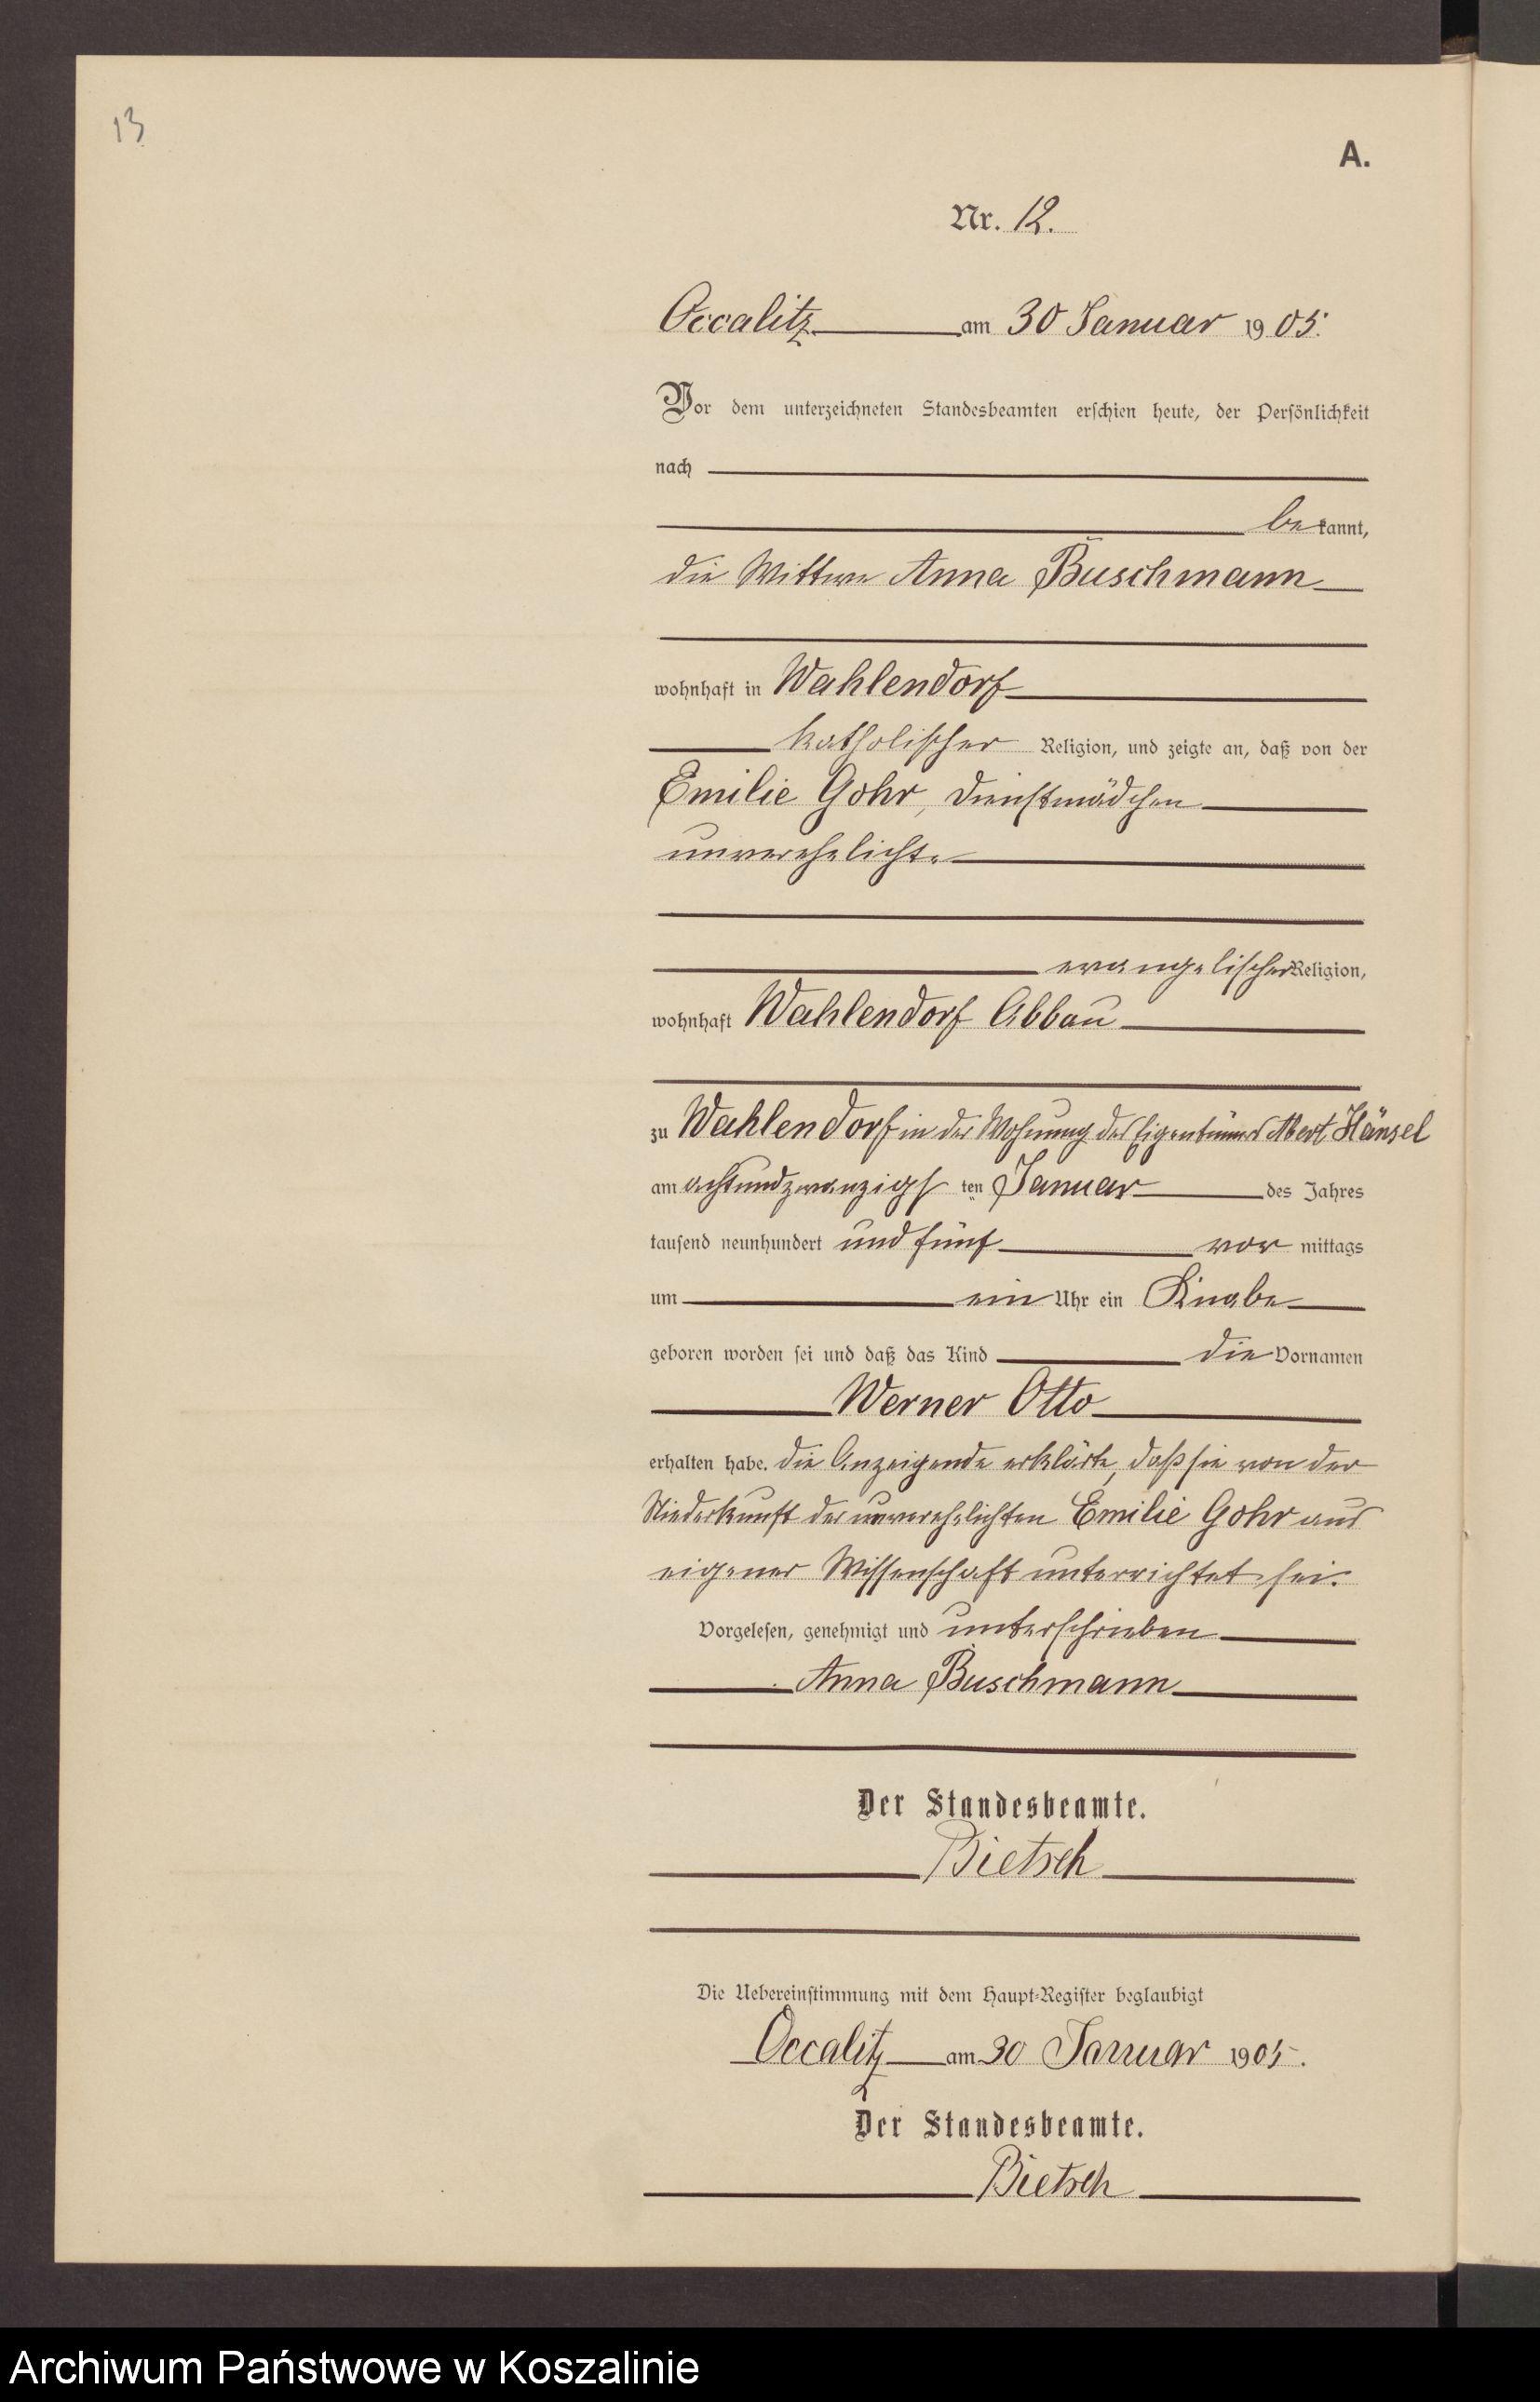 13
A.
Nr. 12.
Occalitz am 30 Januar 1905.
Vor dem unterzeichneten Standesbeamten erschien heute, der Persönlichkeit
nach
bekannt,
die Wittwe Anna Buschmann
wohnhaft in Wahlendorf
katholischer Religion, und zeigte an, daß von der
Emilie Gohr, Dienstmädchen
unverehelichte
evangelischer Religion,
wohnhaft Wahlendorf Abbau
zu Wahlendorf in der Wohnung des Eigentümers Albert Hänsel
am achtundzwanzigsten Januar des Jahres
tausend neunhundert und fünf vor mittags
um ein Uhr ein Knabe
geboren worden sei und daß das Kind die Vornamen
Werner Otto
erhalten habe. Die Anzeigende erklärte, daß sie von der
Niederkunft der unverehelichten Emilie Gohr aus
eigener Wissenschaft unterrichtet sei.
Vorgelesen, genehmigt und unterschrieben
Anna Buschmann
Der Standesbeamte.
Bietsch
Die Uebereinstimmung mit dem Haupt-Register beglaubigt
Occalitz am 30 Januar 1905.
Der Standesbeamte.
Bietsch
Archiwum Państwowe w Koszalinie